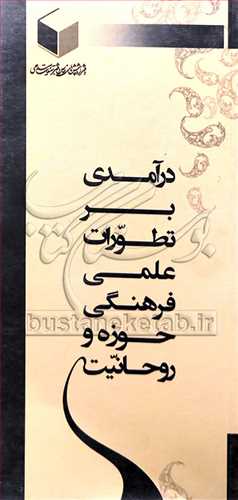 درآمدی
بر
تطوّرات
علمی
فرهنگی
حوزه و
روحانیّت
بوستان کتاب
bustaneketab.ir